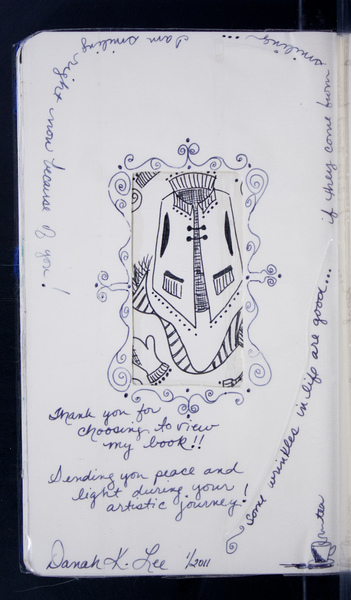 Thank you for
choosing to view
my book!!
Sending you peace and
light during your
artistic journey!
Danah K. Lee 1/2011
Some wrinkles in life are good...
if they come from
smiling...
I am smiling
right now because of you!